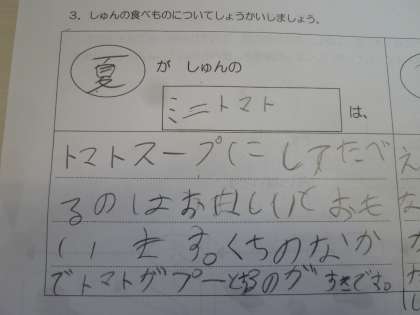 3. しゅんの食べものについてしょうかいしましょう。
夏 が しゅんの
ミニトマト は、
トマトスープにしてたべ
るのはお良しいとおも
います。くちのなか
でトマトがプーとなるのがすきです。